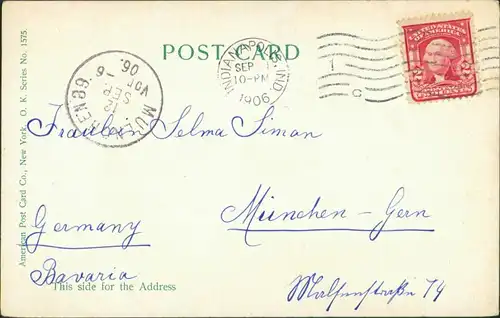 POST CARD
INDIANAPOLIS, IND.
SEP
10-PM
1906
MÜNCHEN 89.
12 SEP
VOR
06.
UNITED STATES OF AMERICA
2 2
Fräulein Selma Simon
München - Gern
Germany
Bavaria
This side for the Address
American Post Card Co., New York. O. K. Series No. 1575.